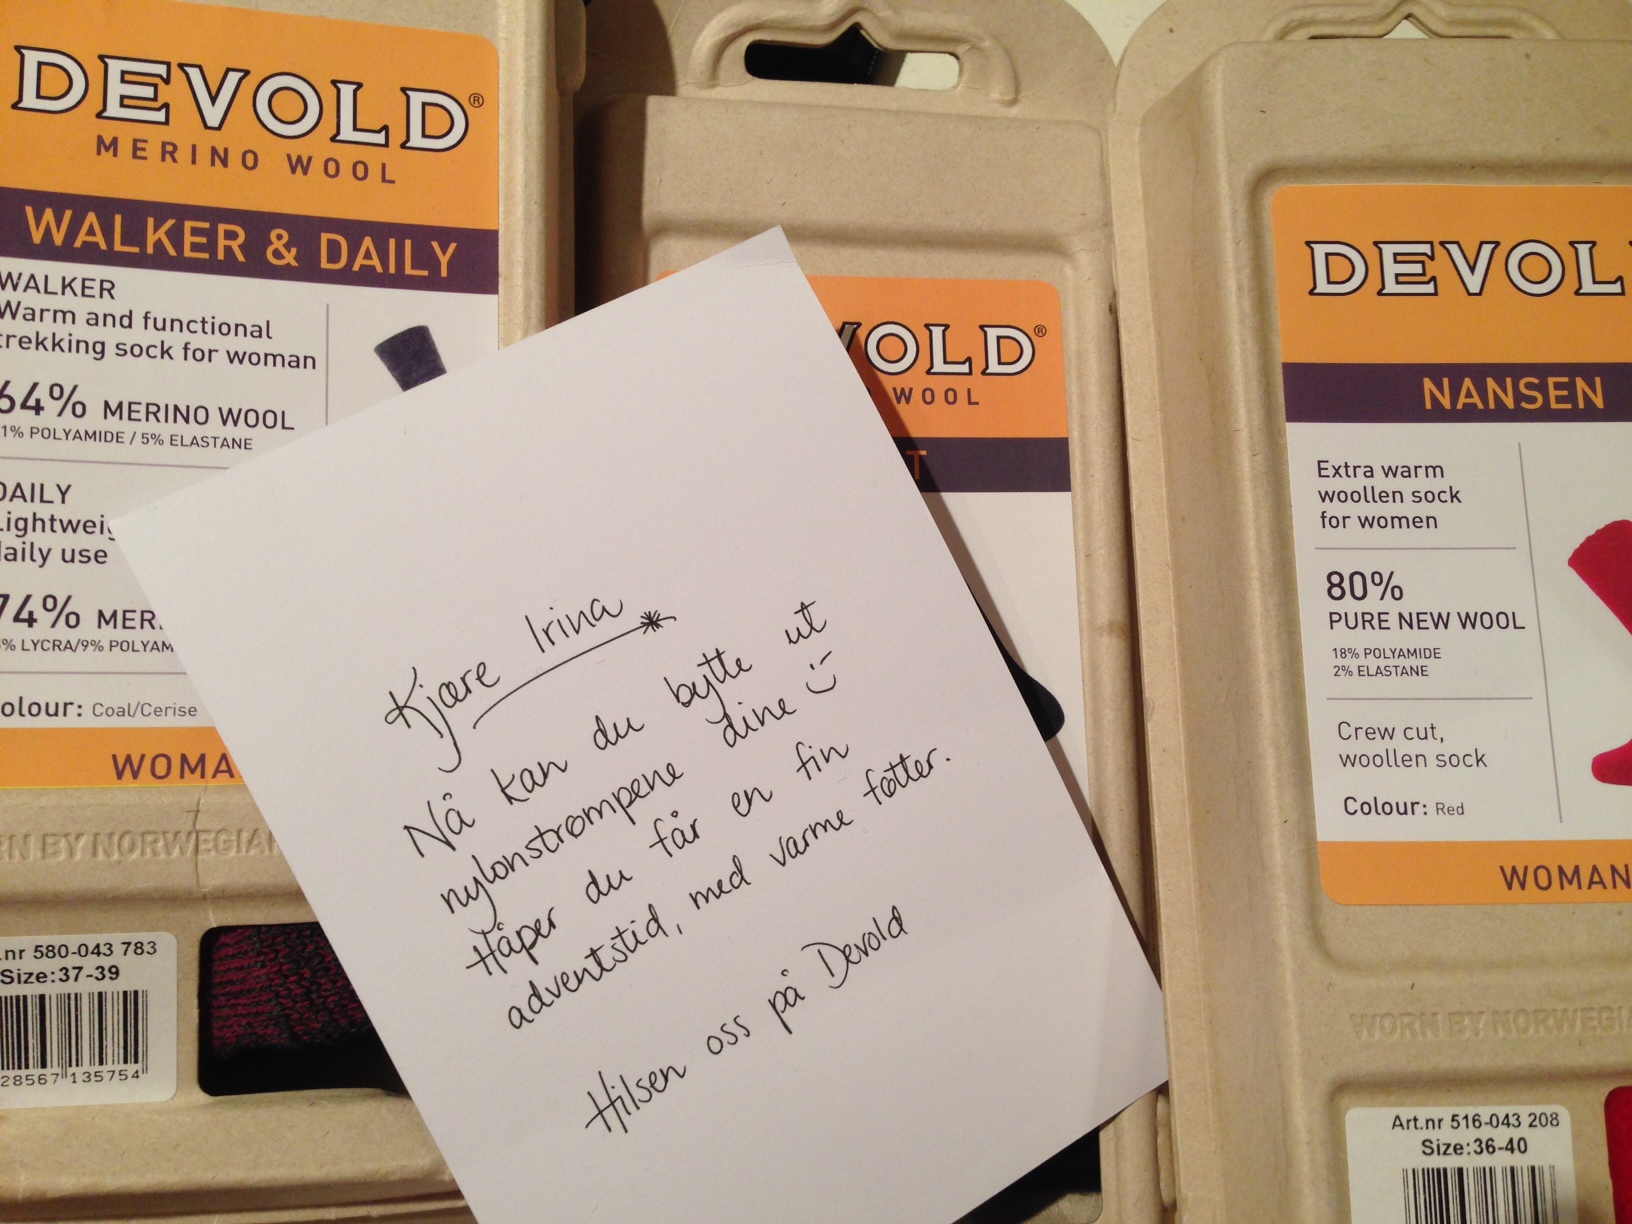 DEVOLD®
MERINO WOOL
WALKER & DAILY
WALKER
Warm and functional
trekking sock for woman
64% MERINO WOOL
1% POLYAMIDE / 5% ELASTANE
DAILY
Lightwei
daily use
74% MER
% LYCRA/9% POLYAM
olour: Coal/Cerise
WOMA
RN BY NORWEGIAN
.nr 580-043 783
Size:37-39
28567 135754
VOLD®
WOOL
T
Kjære Irina
Nå kan du bytte ut
nylonstrømpene dine :)
Håper du får en fin
adventstid, med varme føtter.
Hilsen oss på Devold
DEVOL
NANSEN
Extra warm
woollen sock
for women
80%
PURE NEW WOOL
18% POLYAMIDE
2% ELASTANE
Crew cut,
woollen sock
Colour: Red
WOMAN
WORN BY NORWEGI
Art.nr 516-043 208
Size:36-40